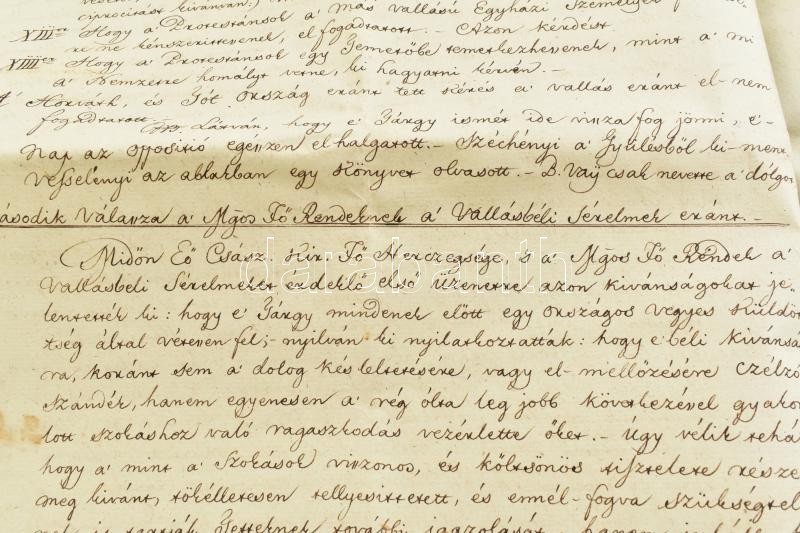 ciprocitást kivánván:)
XIII Hogy a Protestánsok a' más vallású Egyházi Személyek
re ne kénszerittessenek, elfogadtatott. – Azon kérdést
XIIII Hogy a Protestánsok egy Temetőbe temetkezhessenek, mint a' mi
a' Nemzetre homályt vetne, ki hagyatni kérvén. –
Horváth, és Tót ország eránt tett kérés a' vallás eránt el-nem
fogadtatott. Látván, hogy e' Tárgy ismét ide vissza fog jönni, e'
Nap az oppositió egeszszen elhalgatott. – Széchényi a' Gyűlésből ki-ment
Vesselényi az ablakban egy Könyvet olvasott. – B. Vaÿ csak nevette a' dólgot
ásodik Válassza a' Mgos Fő Rendeknek a' Vallásbéli Sérelmek eránt. –
Midőn Eő Császr. Kir. Fő Herczegsége, s a' Mgos Fő Rendek a'
Vallásbéli Sérelmeket érdeklő első üzenetre azon kivánságokat je-
lentették ki: hogy e' Tárgy mindenek előtt egy országos vegyes Küldött
tség által vétessen fel; – nyilván ki nyilatkoztatták: hogy e' béli kivánsá
ra, koránt sem a' dolog késleltetésére, vagy el-mellőzésére czélzó
szándék, hanem egyenesen a' rég ólta leg jobb következéssel gyako
lott szokáshoz való ragaszkodás vezérlette őket. – Úgy vélik tehá
hogy a' mint a' Szokások viszonos, és költsönös tisztelete részé
meg kivánt, tökélletesen tellyesittetett, és ennél-fogva szükségtel
további igazolását, hanem